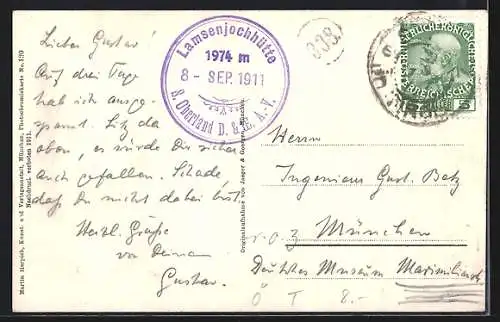 Lieber Gustav!
Auf drei Tage
hab ich ausge-
spannt. Sitz da
oben, es würde Dir sicher
auch gefallen. Schade,
daß Du nicht dabei bist
Herzl. Grüße
von Deinem
Gustav.
Lamsenjochhütte
1974 m
8 - SEP. 1911
S. Oberland D. & Ö. A. V.
Martin Herpich, Kunst- und Verlagsanstalt, München, Photochromiekarte No.
Nachdruck verboten 1911.
Originalaufnahme von Jaeger & Goergen, München
5
Herrn
Ingenieur Gust. Betz
München
Deutsches Museum Maximilianstr.
Ö T 8.-